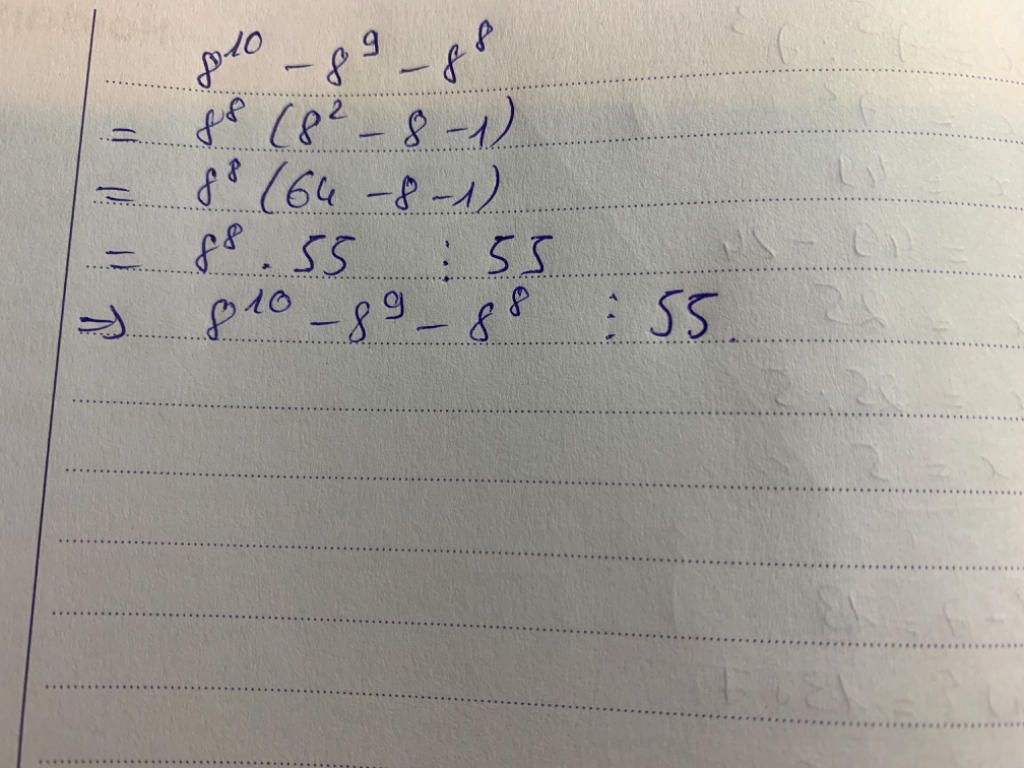 8¹⁰ – 8⁹ – 8⁸
= 8⁸ (8² – 8 – 1)
= 8⁸ (64 – 8 – 1)
= 8⁸ . 55 ⋮ 55
⇒ 8¹⁰ – 8⁹ – 8⁸ ⋮ 55.